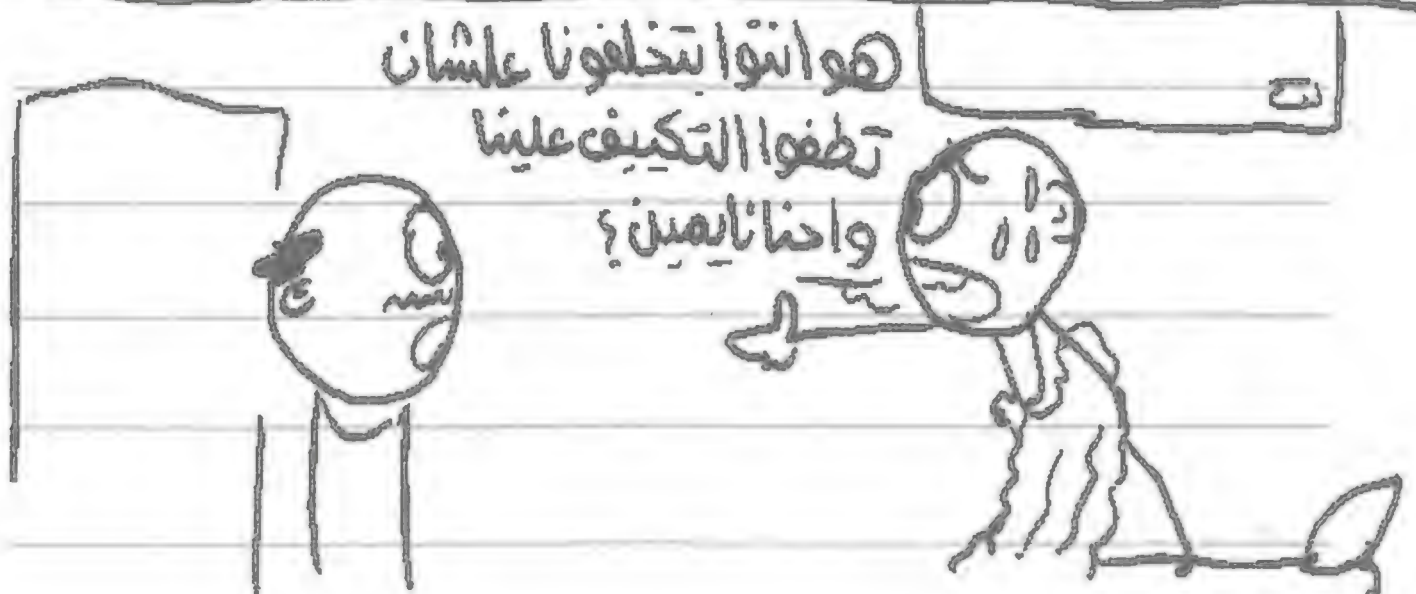 هو انتوا بتخلفونا علشان
تطفوا التكييف علينا
واحنا نايمين؟